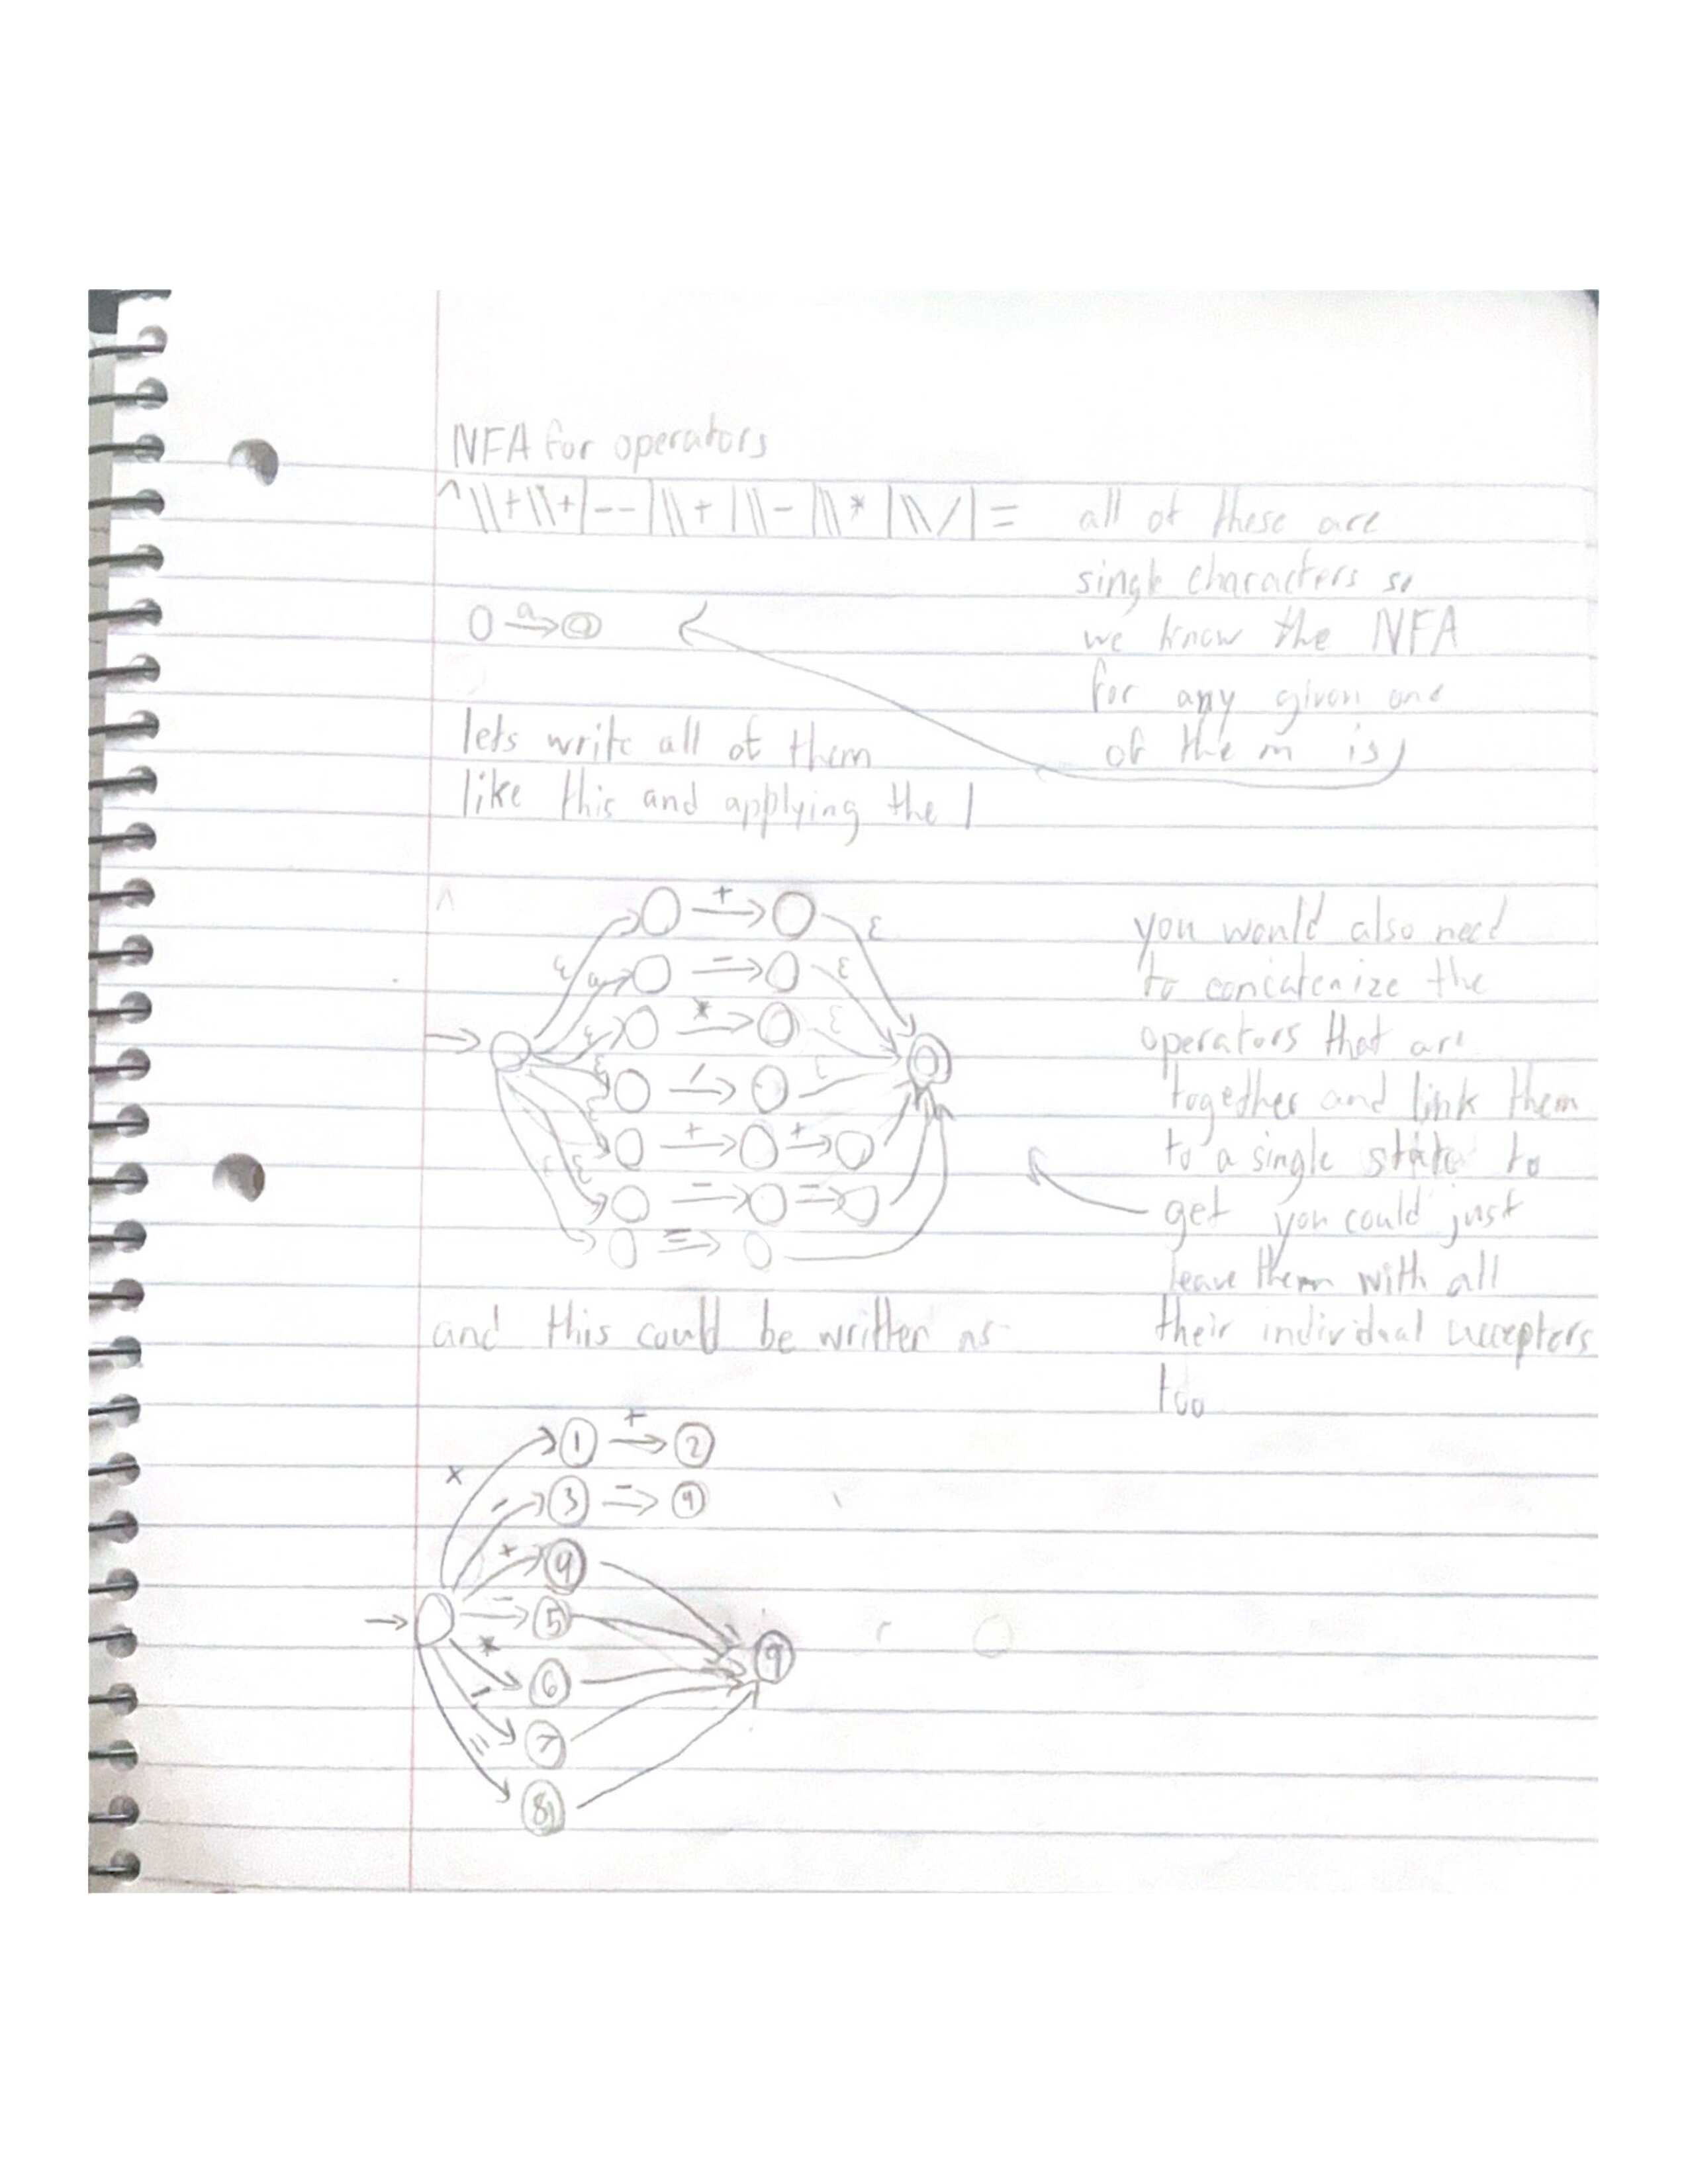 NFA for operators
^\\+\\+|--|\\+|\\-|\\*|\\/|=
all of these are
single characters so
we know the NFA
for any given one
of the m is
a
lets write all of them
like this and applying the |
^
+ ε
ε - ε
ε * ε
ε / ε
ε + +
ε - -
=
you would also need
to concatenize the
operators that are
together and link them
to a single state to
get you could just
leave them with all
their individual acceptors
too
and this could be written as
+ 1 + 2
- 3 - 9
+ 9
- 5
* 6
9
/ 7
= 8